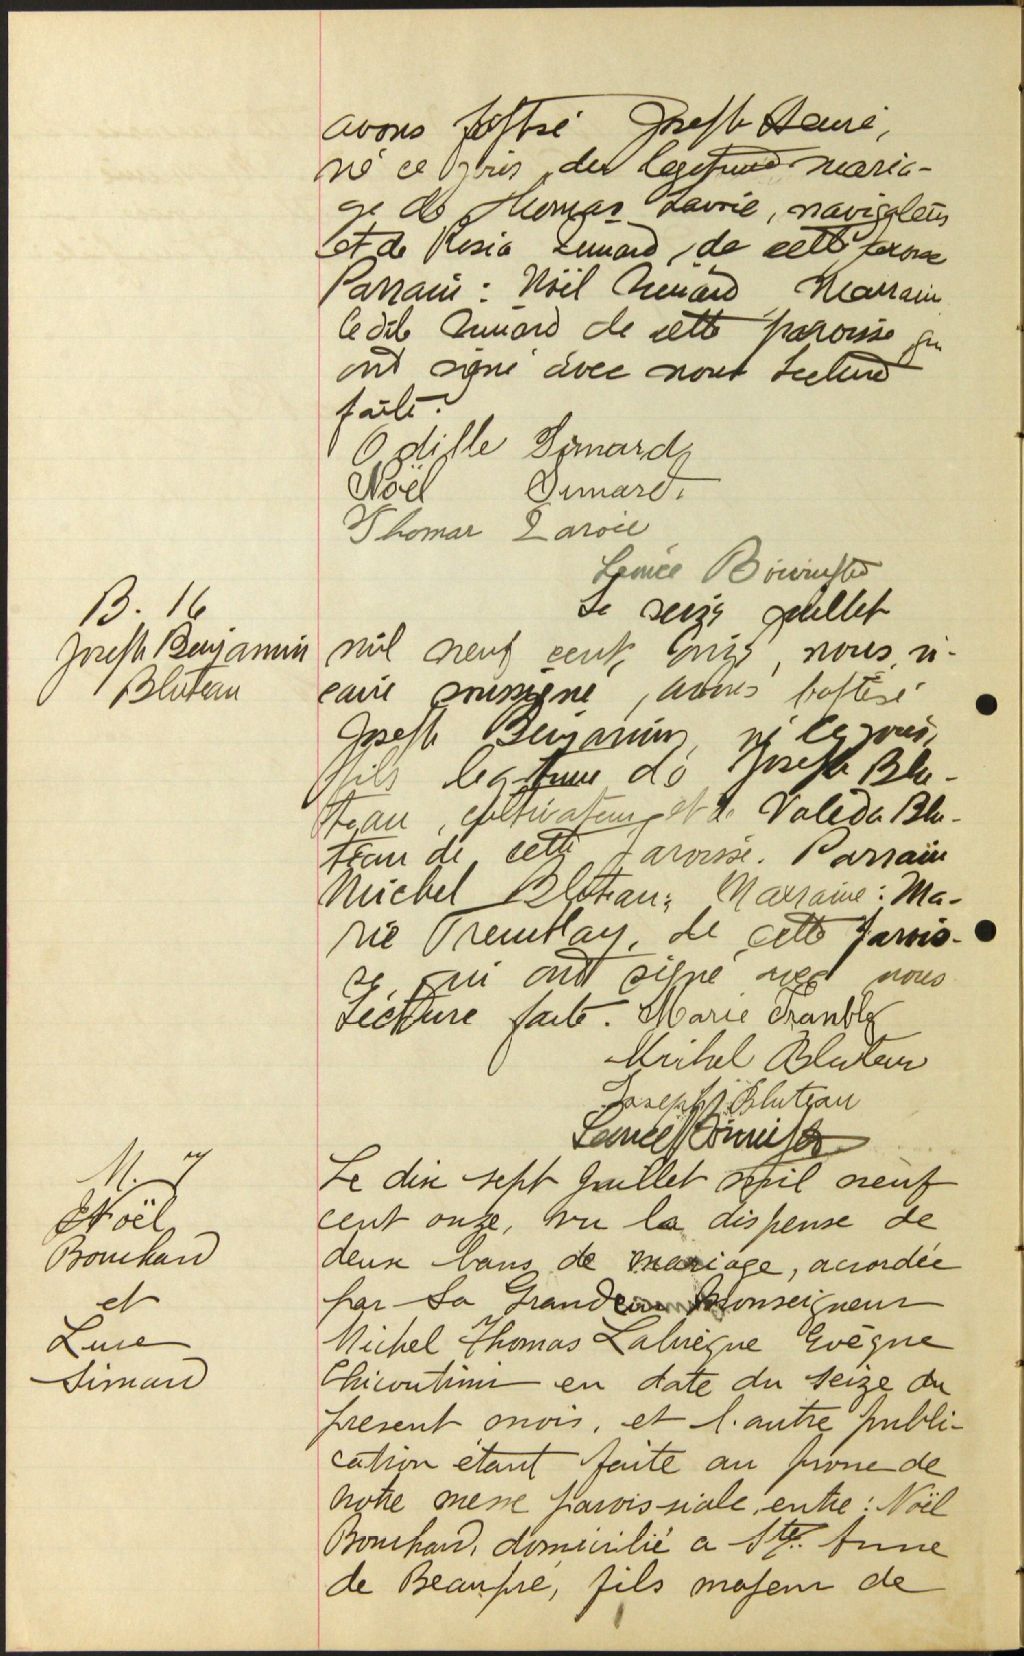 avons baptisé Joseph Henri,
né ce jour, du legitime maria-
ge de Thomas Lavoie, navigateur
et de Rosia Simard, de cette paroisse
Parrain : Noël Simard Marraine
Odile Simard de cette paroisse qui
ont signé avec nous Lecture
faite.
Odille Simard
Noël Simard.
Thomas Lavoie
Le seize juillet
B. 16
Joseph Benjamin
Bluteau
mil neuf cent onze, nous, vi-
caire soussigné, avons baptisé
Joseph Benjamin, né ce jour,
fils legitime de Joseph Blu-
teau, cultivateur et de Valéda Blu-
teau de cette paroisse. Parrain
Michel Bluteau; Marraine : Ma-
rie Tremblay, de cette parois-
se, qui ont signé avec nous
Lecture faite. Marie Trambly
Mihel Bluteau
Joseph Bluteau
M. 7
Noël
Bouchard
et
Luce
Simard
Le dix sept Juillet mil neuf
cent onze, vu la dispense de
deux bans de mariage, accordée
par Sa Grandeur Monseigneur
Michel Thomas Labrèque Evêque
Chicoutimi en date du seize du
present mois, et l'autre publi-
cation étant faite au prone de
notre messe paroissiale, entre : Noël
Bouchard, domicilié a Ste. Anne
de Beaupré, fils majeur de